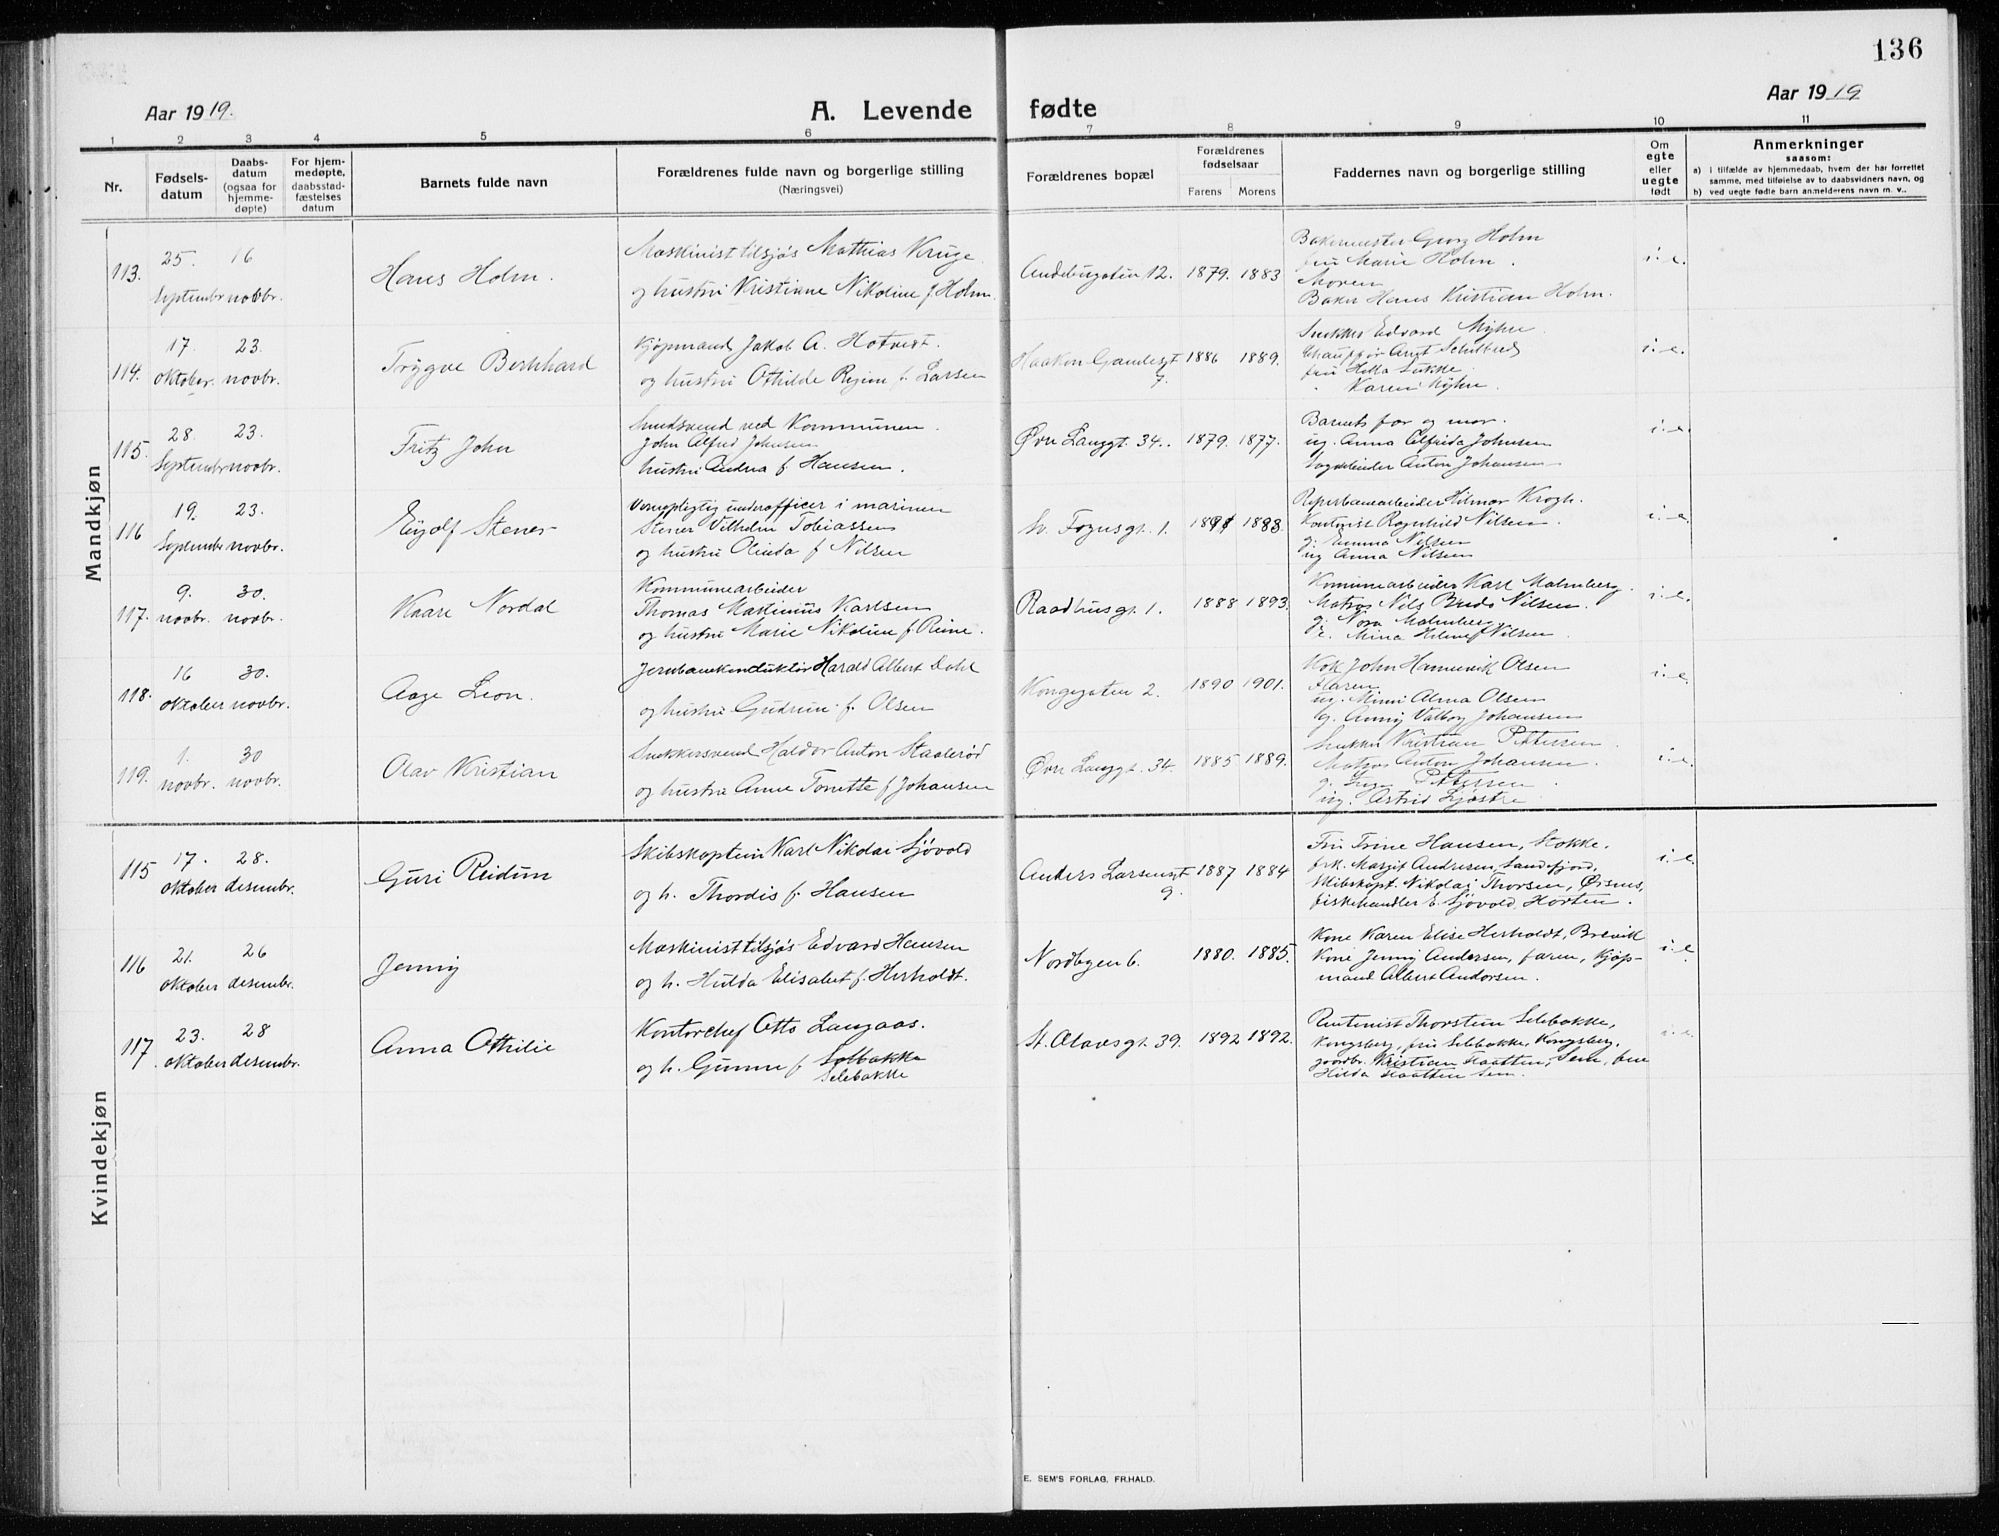 136
Aar 1919.
A. Levende fødte
Aar 1919
1 2 3 4 5 6 7 8 9 10 11
Nr.
Fødsels-
datum
Daabs-
datum
(ogsaa for
hjemme-
døpte)
For hjem-
medøpte,
daabsstad-
fæstelses
datum
Barnets fulde navn
Forældrenes fulde navn og borgerlige stilling
(Næringsvei)
Forældrenes bopæl
Forældrenes
fødselsaar
Farens Morens
Faddernes navn og borgerlige stilling
Om
egte
eller
uegte
født
Anmerkninger
saasom:
a) i tilfælde av hjemmedaab, hvem der har forrettet
samme, med tilføielse av to daabsvidners navn, og
b) ved uegte fødte barn anmelderens navn m. v..
Mandkjøn
113.
25.
Septembr
16
novbr.
Hans Holm.
Maskinist tilsjøs Mathias Kruge
og hustru Kristiane Nikoline f. Holm.
Andebugaten 12.
1879. 1883
Bakermester Georg Holm
fru Marie Holm.
Moren
Baker Hans Kristian Holm.
i. e.
114.
17.
oktober.
23.
novbr.
Trygve Bernhard
Kjøpmand Jakob A. Hotvedt.
og hustru Othilde Regine f. Larsen
Haakon Gamlesgt
7.
1886 1889.
Snekker Edvard Myhre.
Karen Myhre.
i. e.
115.
28.
Septembr
23.
novbr.
Fritz John
Smedsvend ved Kommunen.
John Alfred Johnsen
hustru Andrea f. Hansen.
Øvre Langgt. 34.
1879. 1877.
Barnets far og mor.
ug. Anna Alfrida Johnsen
Anton Johansen
i. e.
116
19.
September
23.
novbr.
Eyolf Stener
Vernepligtig underofficer i marinen
Stener Vilhelm Tobiassen
og hustru Olinda f. Nilsen
Sv. Foynsgt. 1.
1891 1883.
Reperbanearbeider Hilmar Krogh.
Kontorist Ragnhild Nilsen.
g. Emma Nilsen
ug Anna Nilsen
i. e.
117.
9.
novbr.
30.
novbr.
Kaare Nordal
Kommunearbeider
Thomas Maksinius Karlsen
og hustru Marie Nikoline f. Reine.
Raadhusgt. 1.
1888 1893.
Kommunearbeider Karl Malmberg.
Matros Nils Bredo Nilsen.
g. Nora Malmberg
Nilsen
i. e.
118.
16
oktober
30.
novbr.
Aage Leon.
Jernbanekonduktør Harald Albert Dahl
og hustru Gudrun f. Olsen
Kongegaten 2.
1890 1901.
Kok John Hannevik Olsen
Faren
ug. Mimi Alma Olsen
ug. Anny Valborg Johansen
i. e.
119.
1.
novbr.
30
novbr.
Olav Kristian
Snekkersvend Haldor Anton Staalerød
og hustru Anne Tonette f. Johansen
Øvre Langgt. 34.
1885 1889.
Snekker Kristian Pettersen.
Matros Anton Johansen.
g. Inga Pettersen.
ug. Astrid Sjøstrø
i. e.
Kvindekjøn
115
17.
oktober
28.
desembr.
Guri Reidun
Skibskaptein Karl Nikolai Sjøvold
og h. Thordis f. Hansen
Anders Larsensgt
9.
1887 1884
Fru Trine Hansen, Stokke.
frk. Margit Andresen, Sandefjord,
Skibskapt. Nikolaj Thorsen,
fiskehandler E. Sjøvold, Horten.
i. e.
116
21.
oktober
26
desembr.
Jenny
Maskinist tilsjøs Edvard Hansen
og h. Hulda Elisabet f. Herholdt.
Nordbyen 6.
1880. 1885.
Kone Karen Elise Herholdt, Brevik
Kone Jenny Andersen, faren, Kjøp-
mand Albert Andersen.
i. e.
117
23.
oktober
28
desembr.
Anna Othilie
Kontorchef Otto Langaas.
og h. Gunne f. Solbakke
Selebakke
St. Olavsgt. 39.
1892 1892.
Rentenist Thorstein Selebakke,
Kongsberg, fru Selebakke, Kongsberg,
gaardbr. Kristian Flaatten, Sem, fru
Hilda Flaatten Sem.
i. e.
E. SEM'S FORLAG, FR.HALD.